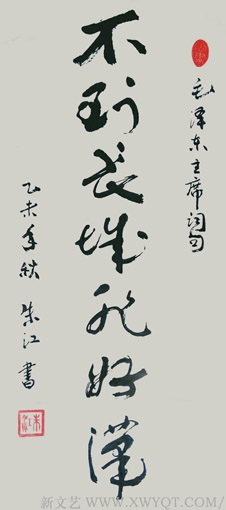 毛泽东主席词句
不到长城非好汉
乙未年秋 朱江书
新文艺 WWW.XWYQT.COM/